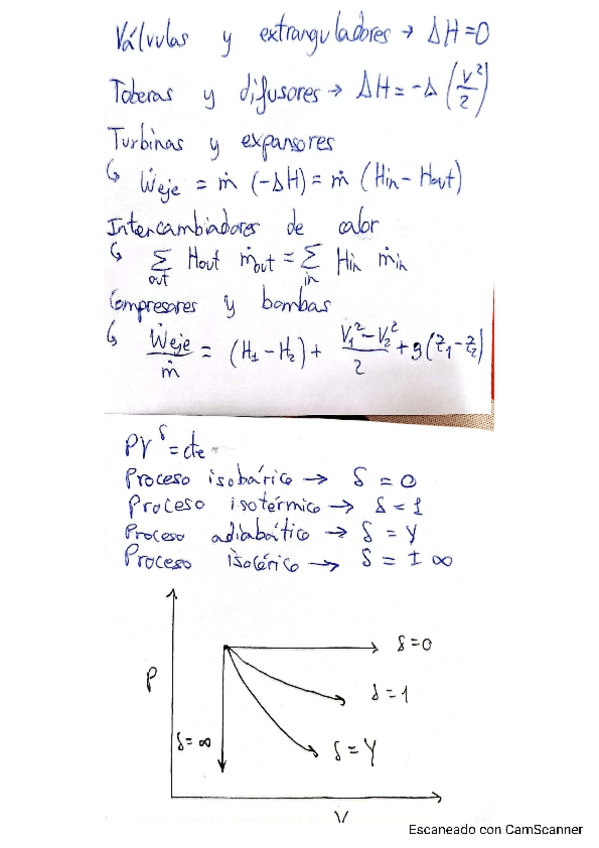 Válvulas y extranguladores → ΔH=0
Toberas y difusores → ΔH = -Δ (v²/2)
Turbinas y expansores
↳ Ẇeje = ṁ (-ΔH) = ṁ (Hin - Hout)
Intercambiadores de calor
↳ Σout Hout ṁout = Σin Hin ṁin
Compresores y bombas
↳ Ẇeje/ṁ = (H1 - H2) + (V1² - V2²)/2 + g(z1 - z2)
PV^δ = cte
Proceso isobárico → δ = 0
Proceso isotérmico → δ = 1
Proceso adiabático → δ = γ
Proceso isocórico → δ = ± ∞
δ=0
P
δ=1
δ=∞
δ=γ
V
Escaneado con CamScanner